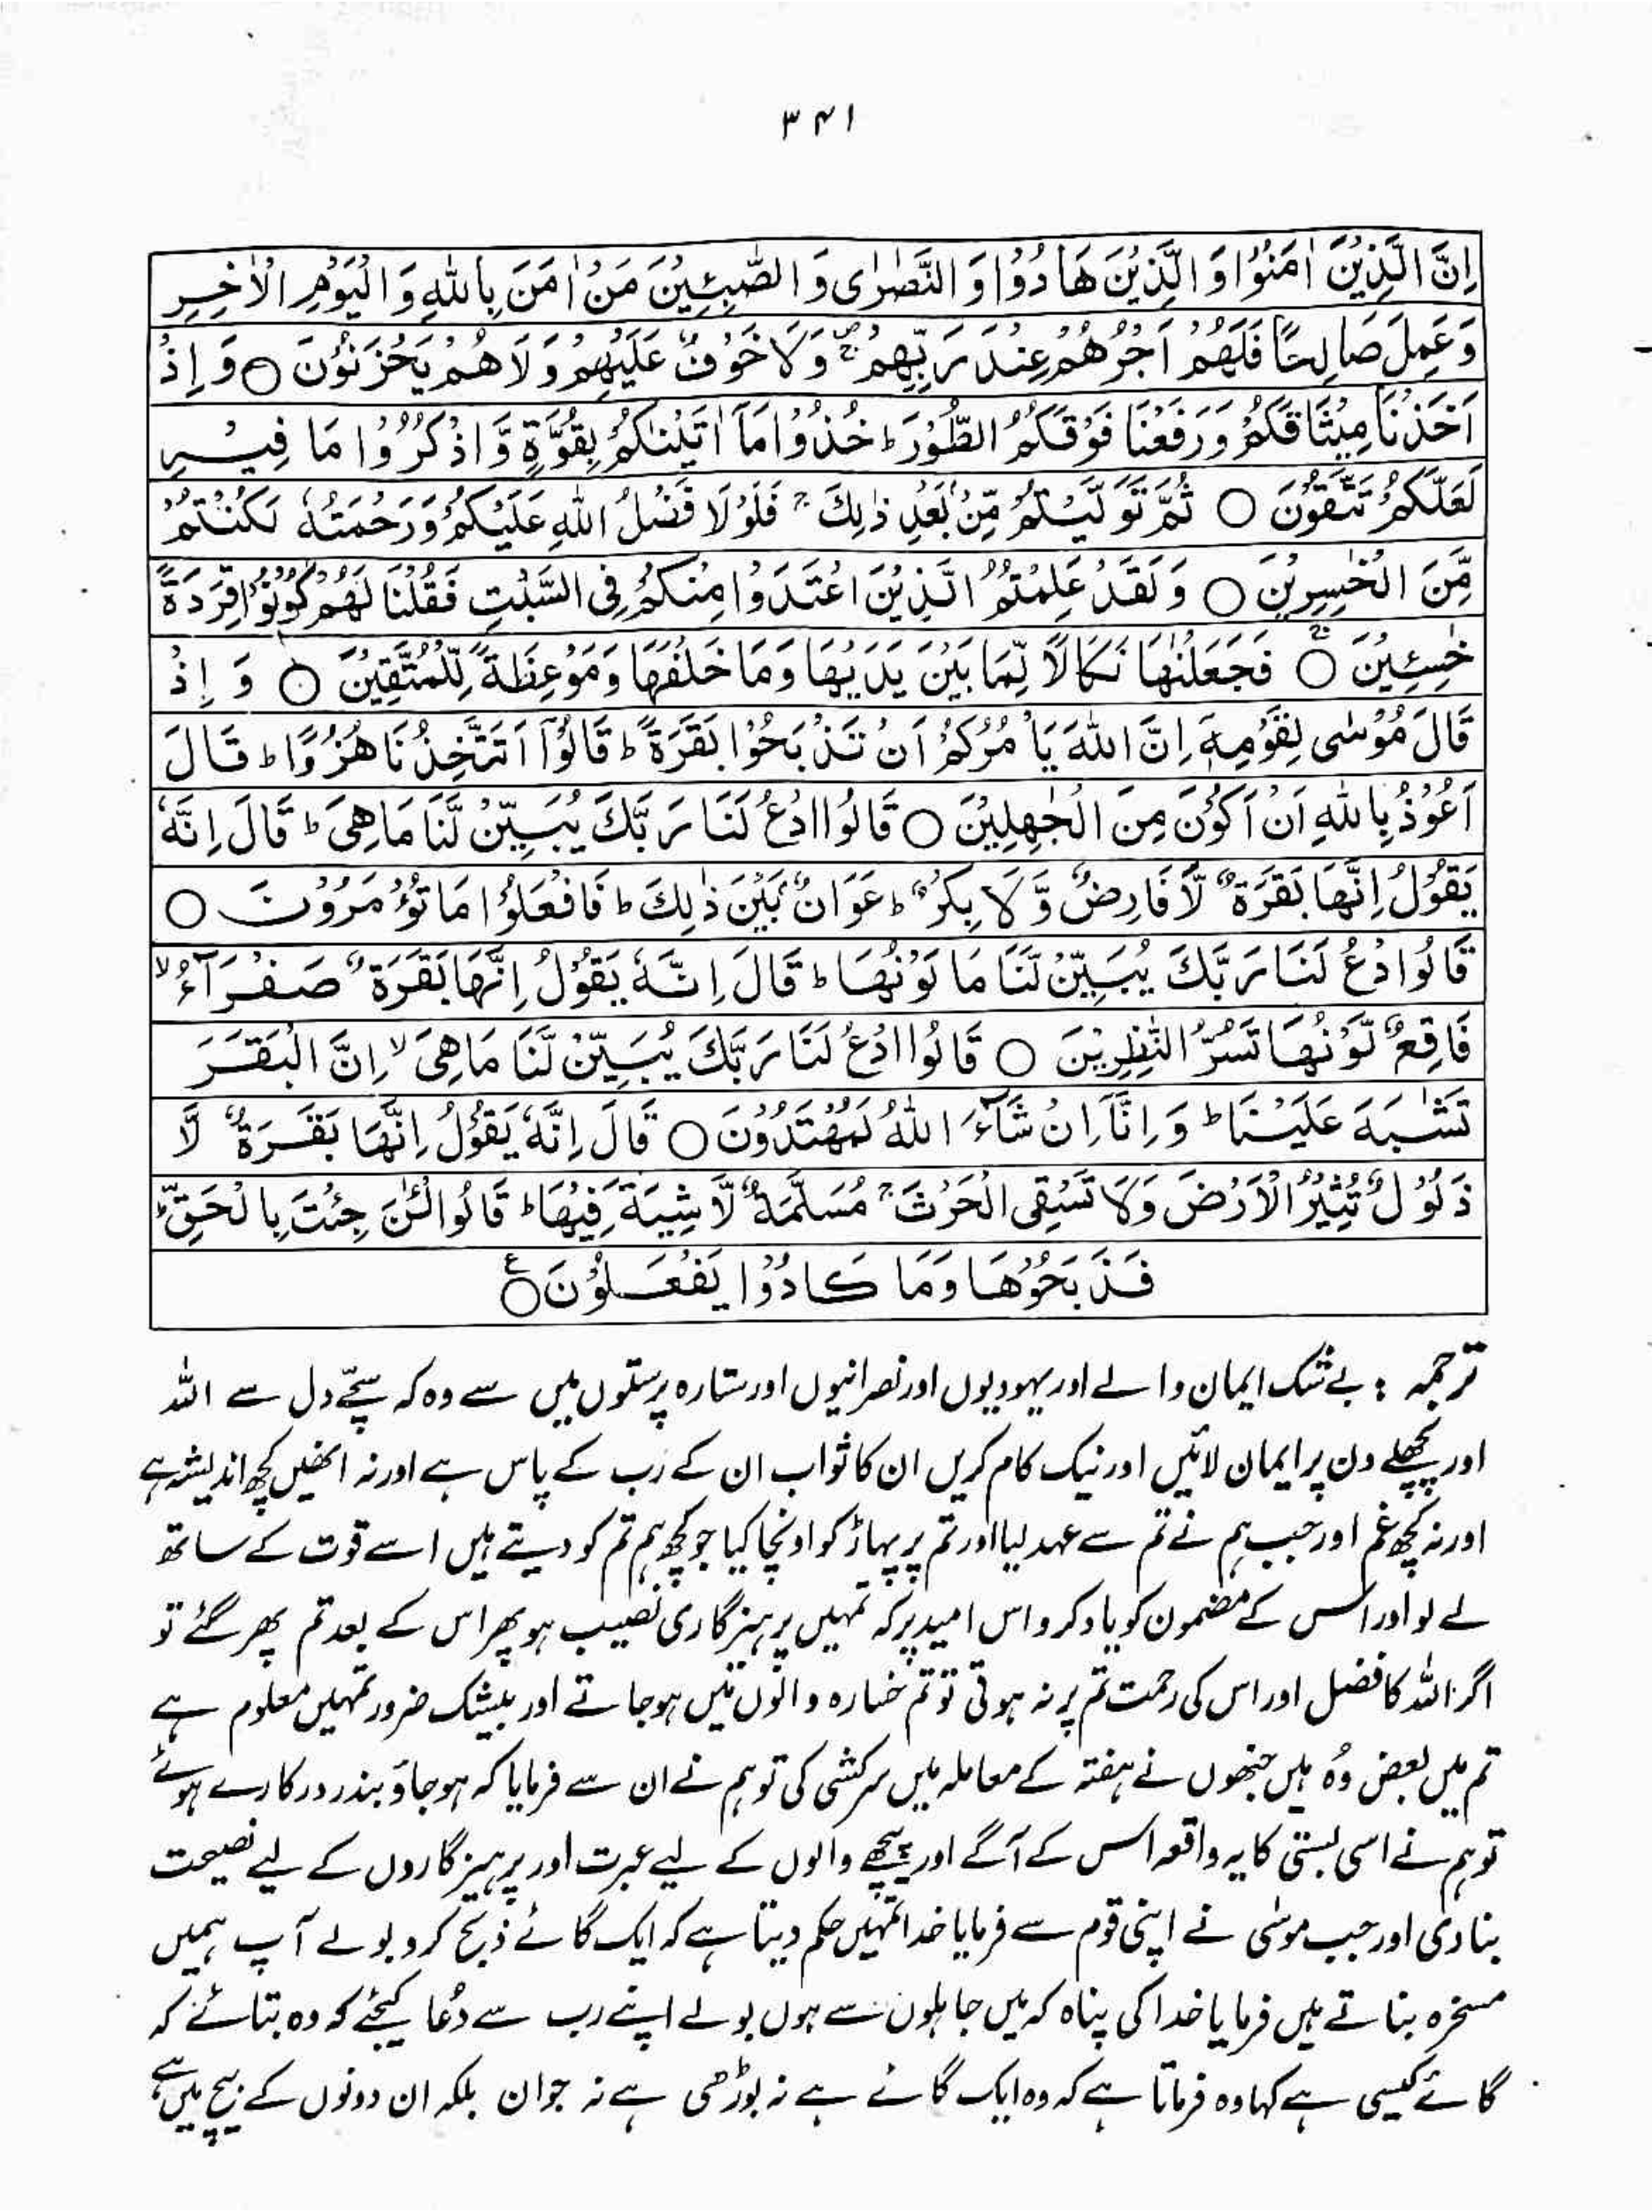 ۳۴۱
اِنَّ الَّذِيْنَ اٰمَنُوْا وَ الَّذِيْنَ هَادُوْا وَ النَّصٰرٰى وَ الصّٰبِئِيْنَ مَنْ اٰمَنَ بِاللّٰهِ وَ الْيَوْمِ الْاٰخِرِ
وَعَمِلَ صَالِحًا فَلَهُمْ اَجْرُهُمْ عِنْدَ رَبِّهِمْ ۚ وَلَا خَوْفٌ عَلَيْهِمْ وَلَا هُمْ يَحْزَنُوْنَ ○ وَ اِذْ
اَخَذْنَا مِيْثَاقَكُمْ وَرَفَعْنَا فَوْقَكُمُ الطُّوْرَ ؕ خُذُوْا مَاۤ اٰتَيْنٰكُمْ بِقُوَّةٍ وَّ اذْكُرُوْا مَا فِيْهِ
لَعَلَّكُمْ تَتَّقُوْنَ ○ ثُمَّ تَوَلَّيْتُمْ مِّنْۢ بَعْدِ ذٰلِكَ ۚ فَلَوْلَا فَضْلُ اللّٰهِ عَلَيْكُمْ وَرَحْمَتُهٗ لَكُنْتُمْ
مِّنَ الْخٰسِرِيْنَ ○ وَلَقَدْ عَلِمْتُمُ الَّذِيْنَ اعْتَدَوْا مِنْكُمْ فِى السَّبْتِ فَقُلْنَا لَهُمْ كُوْنُوْا قِرَدَةً
خٰسِئِيْنَ ○ ۚ فَجَعَلْنٰهَا نَكَالًا لِّمَا بَيْنَ يَدَيْهَا وَمَا خَلْفَهَا وَمَوْعِظَةً لِّلْمُتَّقِيْنَ ○ وَ اِذْ
قَالَ مُوْسٰى لِقَوْمِهٖۤ اِنَّ اللّٰهَ يَاْمُرُكُمْ اَنْ تَذْبَحُوْا بَقَرَةً ؕ قَالُوْۤا اَتَتَّخِذُنَا هُزُوًا ؕ قَالَ
اَعُوْذُ بِاللّٰهِ اَنْ اَكُوْنَ مِنَ الْجٰهِلِيْنَ ○ قَالُوا ادْعُ لَنَا رَبَّكَ يُبَيِّنْ لَّنَا مَا هِىَ ؕ قَالَ اِنَّهٗ
يَقُوْلُ اِنَّهَا بَقَرَةٌ لَّا فَارِضٌ وَّ لَا بِكْرٌ ؕ عَوَانٌۢ بَيْنَ ذٰلِكَ ؕ فَافْعَلُوْا مَا تُؤْمَرُوْنَ ○
قَالُوا ادْعُ لَنَا رَبَّكَ يُبَيِّنْ لَّنَا مَا لَوْنُهَا ؕ قَالَ اِنَّهٗ يَقُوْلُ اِنَّهَا بَقَرَةٌ صَفْرَآءُ ۙ
فَاقِعٌ لَّوْنُهَا تَسُرُّ النّٰظِرِيْنَ ○ قَالُوا ادْعُ لَنَا رَبَّكَ يُبَيِّنْ لَّنَا مَا هِىَ ۙ اِنَّ الْبَقَرَ
تَشٰبَهَ عَلَيْنَا ؕ وَ اِنَّاۤ اِنْ شَآءَ اللّٰهُ لَمُهْتَدُوْنَ ○ قَالَ اِنَّهٗ يَقُوْلُ اِنَّهَا بَقَرَةٌ لَّا
ذَلُوْلٌ تُثِيْرُ الْاَرْضَ وَلَا تَسْقِى الْحَرْثَ ۚ مُسَلَّمَةٌ لَّا شِيَةَ فِيْهَا ؕ قَالُوا الْـٰٔنَ جِئْتَ بِالْحَقِّ ؕ
فَذَبَحُوْهَا وَمَا كَادُوْا يَفْعَلُوْنَ ○ ع
ترجمہ : بے شک ایمان والے اور یہودیوں اور نصرانیوں اور ستارہ پرستوں میں سے وہ کہ سچّے دل سے اللہ
اور پچھلے دن پر ایمان لائیں اور نیک کام کریں ان کا ثواب ان کے رب کے پاس ہے اور نہ انھیں کچھ اندیشہ ہے
اور نہ کچھ غم اور جب ہم نے تم سے عہد لیا اور تم پر پہاڑ کو اونچا کیا جو کچھ ہم تم کو دیتے ہیں اسے قوت کے ساتھ
لے لو اور اس کے مضمون کو یاد کرو اس امید پر کہ تمہیں پرہیزگاری نصیب ہو پھر اس کے بعد تم پھر گئے تو
اگر اللہ کا فضل اور اس کی رحمت تم پر نہ ہوتی تو تم خسارہ والوں میں ہو جاتے اور بیشک ضرور تمہیں معلوم ہے
تم میں بعض وُہ ہیں جنھوں نے ہفتہ کے معاملہ میں سرکشی کی تو ہم نے ان سے فرمایا کہ ہو جاؤ بندر درکارے ہوئے
تو ہم نے اسی بستی کا یہ واقعہ اس کے آگے اور پیچھے والوں کے لیے عبرت اور پرہیزگاروں کے لیے نصیحت
بنا دی اور جب موسٰی نے اپنی قوم سے فرمایا خدا تمہیں حکم دیتا ہے کہ ایک گائے ذبح کرو بولے آپ ہمیں
مسخرہ بناتے ہیں فرمایا خدا کی پناہ کہ میں جاہلوں سے ہوں بولے اپنے رب سے دُعا کیجئے کہ وہ بتائے کہ
گائے کیسی ہے کہا وہ فرماتا ہے کہ وہ ایک گائے ہے نہ بوڑھی ہے نہ جوان بلکہ ان دونوں کے بیچ میں ہے،